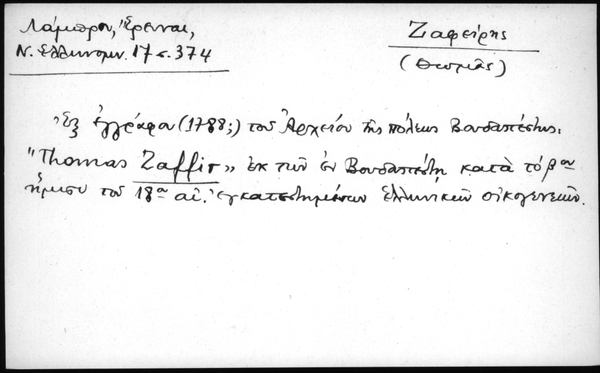 Λάμπρου, Ἔρευναι,
Ν. Ἑλληνομν. 17 σ. 374
Ζαφείρης
(Θωμᾶς)
Ἐξ ἐγγράφου (1788;) τοῦ Ἀρχείου τῆς πόλεως Βουδαπέστης:
"Thomas Zaffir„ ἐκ τῶν ἐν Βουδαπέστῃ κατὰ τὸ β ον
ἥμισυ τοῦ 18 ου αἰ. ἐγκατεστημένων Ἑλληνικῶν οἰκογενειῶν.